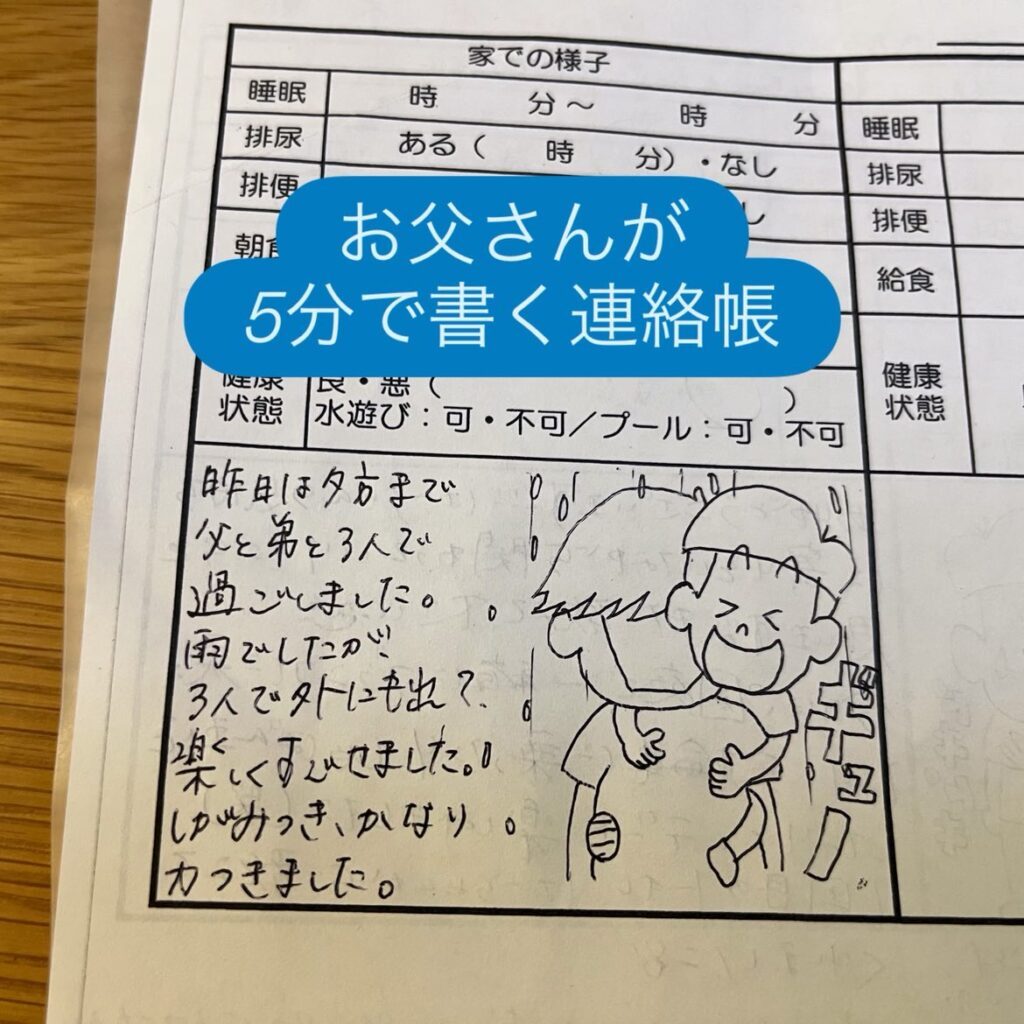 家での様子
睡眠 時 分～ 時 分
排尿 ある( 時 分)・なし
排便 し
朝食
お父さんが
5分で書く連絡帳
健康状態 良・悪( )
水遊び：可・不可／プール：可・不可
睡眠
排尿
排便
給食
健康状態
昨日は夕方まで
父と弟と3人で
過ごしました。
雨でしたが、
3人で外にも出れ?
楽しくすごせました。
しがみつき、かなり
力つきました。
ギュー